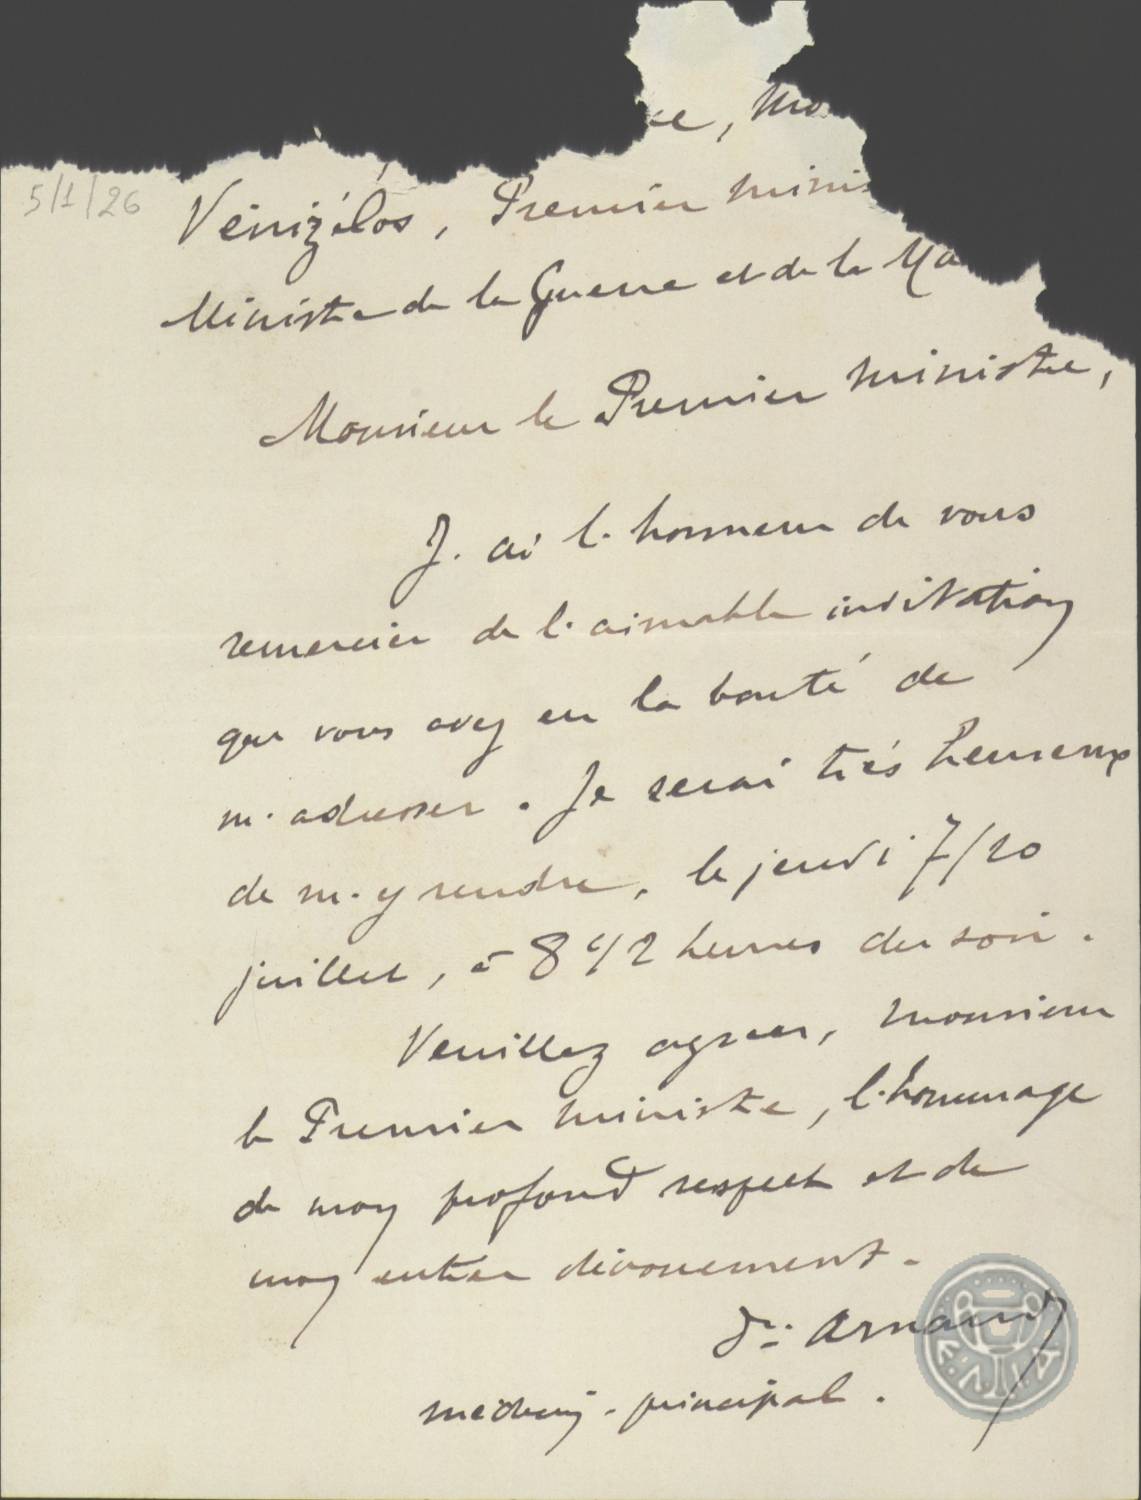 5/1/26
Vénizélos, Premier minis
Ministre de la Guerre et de la Ma
Monsieur le Premier ministre,
J'ai l'honneur de vous
remercier de l'aimable invitation
que vous avez eu la bonté de
m'adresser. Je serai très heureux
de m'y rendre, le jeudi 7/20
juillet, à 8 1/2 heures du soir.
Veuillez agréer, Monsieur
le Premier ministre, l'hommage
de mon profond respect et de
mon entier dévouement.
Dr. Arnaud
médecin-principal.